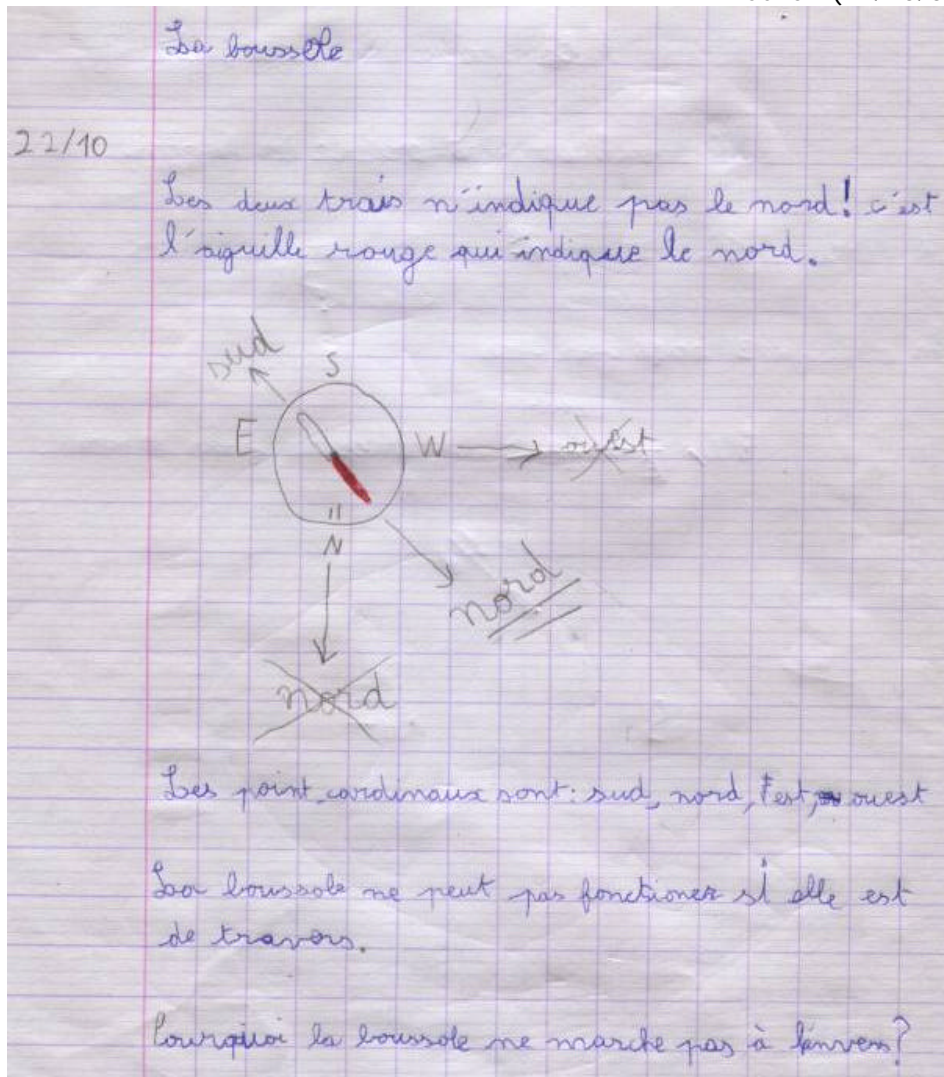 La boussole
22/10
Les deux trais n'indique pas le nord! c'est
l'aiguille rouge qui indique le nord.
sud
S
E
W
ouest
N
nord
nord
Les point cardinaux sont: sud, nord, est, ouest
La boussole ne peut pas fonctioner si elle est
de travers.
Pourquoi la boussole ne marche pas à l'envers?